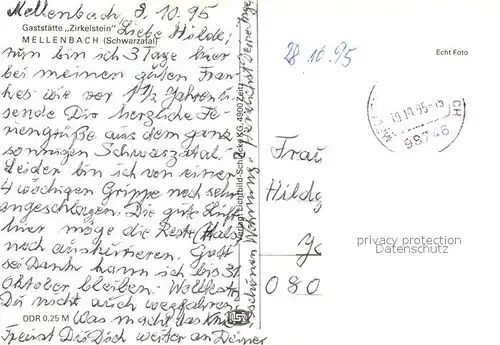 Mellenbach 8.10.95
Gaststätte „Zirkelstein"
MELLENBACH (Schwarzatal)
Liebe Hilde,
nun bin ich 3 Tage hier
bei meinen guten Fran
kes wie vor 1 1/2 Jahren u.
sende Dir herzliche Fe-
riengrüße aus dem ganz
sonnigen Schwarzatal.
Leider bin ich von einer
4 wöchigen Grippe noch sehr
angeschlagen. Die gute Luft
hier möge die Reste (Hals)
noch auskurieren. Gott
sei Dank kann ich bis 31
Oktober bleiben. Wolltest
Du nicht auch wegfahren.
DDR 0,25 M Was macht das Knie
Freust Du Dich weiter an Deiner
schönen Wohnung.
Verlag Lichtbild-Schincke KG, 4900 Zeitz
28.10.95
Echt Foto
98746
Frau
Hildg
080
privacy protection
Datenschutz